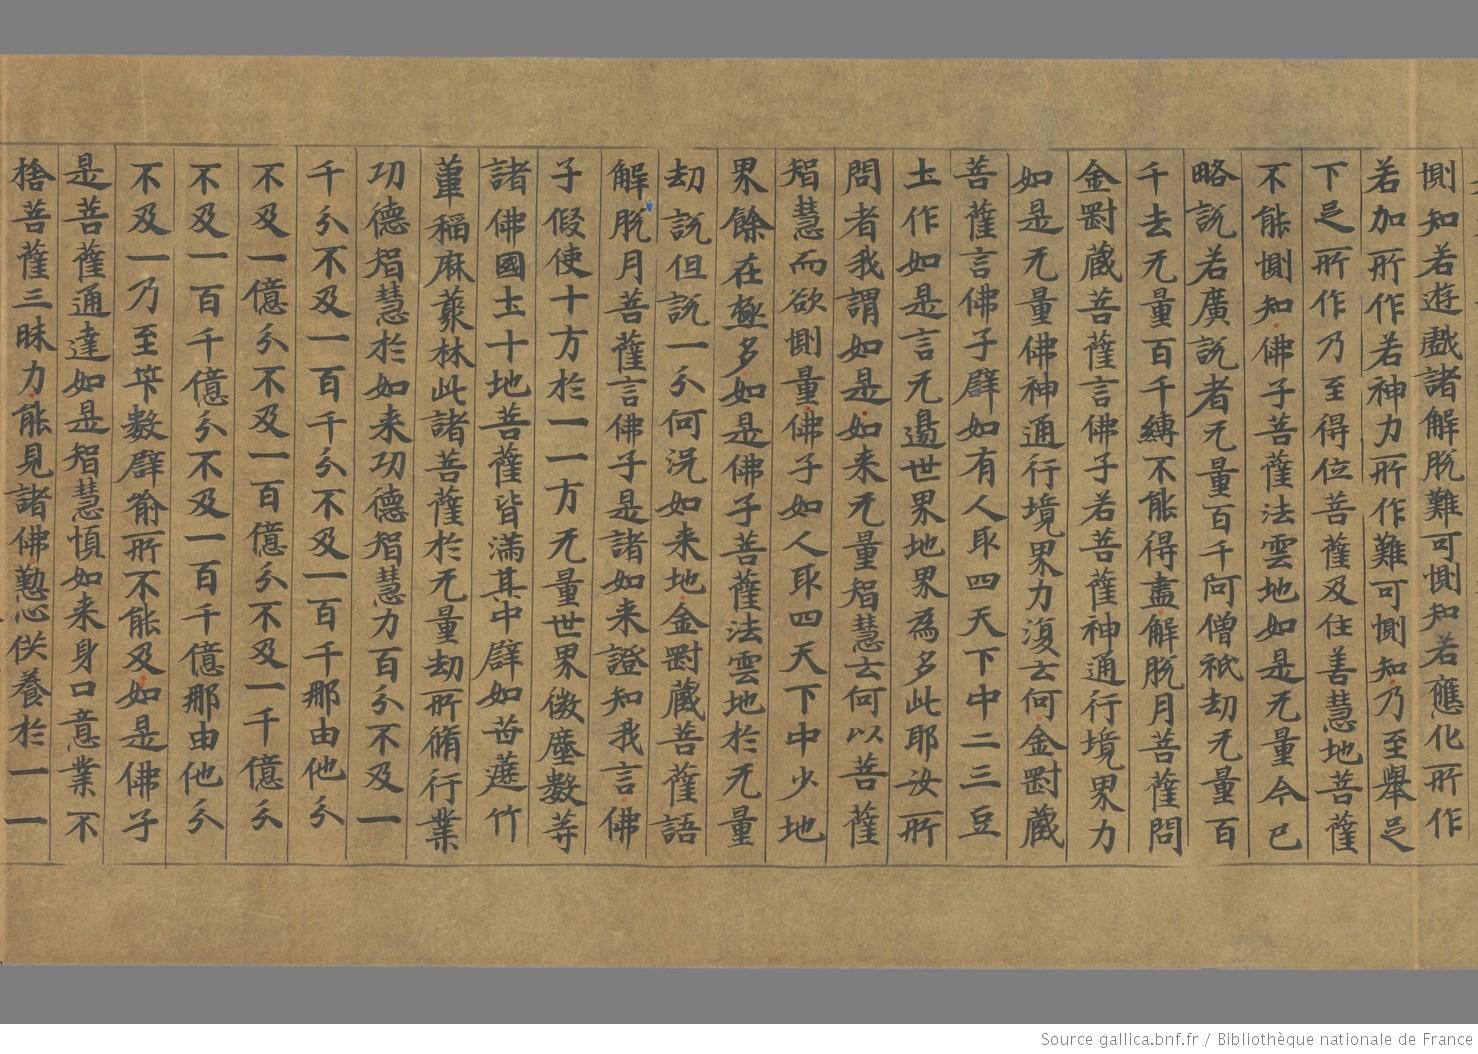 惻知若遊戲諸解脫難可惻知若應化所作
若加所作若神力所作難可惻知乃至舉足
下足所作乃至得位菩薩及住善慧地菩薩
不能惻知佛子菩薩法雲地如是无量今已
略說若廣說者无量百千阿僧祇劫无量百
千去无量百千縛不能得盡解脫月菩薩問
金剛藏菩薩言佛子若菩薩神通行境界力
如是无量佛神通行境界力復云何金剛藏
菩薩言佛子辟如有人取四天下中二三豆
土作如是言无邊世界地界為多此耶汝所
問者我謂如是如来无量智慧云何以菩薩
智慧而欲惻量佛子如人取四天下中少地
界餘在極多如是佛子菩薩法雲地於无量
劫說但說一分何況如来地金剛藏菩薩語
解脫月菩薩言佛子是諸如来證知我言佛
子假使十方於一一方无量世界微塵數等
諸佛國土十地菩薩皆滿其中辟如苷蔗竹
葦稻麻藂林此諸菩薩於无量劫所脩行業
功德智慧於如来功德智慧力百分不及一
千分不及一百千分不及一百千那由他分
不及一億分不及一百億分不及一千億分
不及一百千億分不及一百千億那由他分
不及一乃至筭數辟喻所不能及如是佛子
是菩薩通達如是智慧慎如来身口意業不
捨菩薩三昧力能見諸佛懃心供養於一一